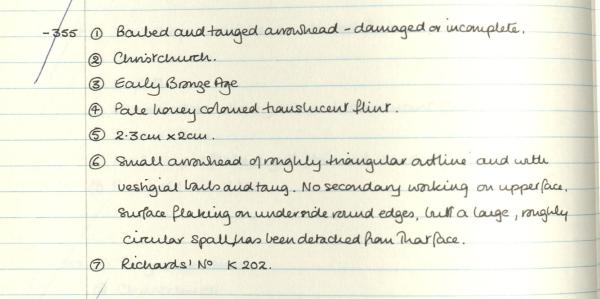 -355 ① Barbed and tanged arrowhead - damaged or incomplete.
② Christchurch.
③ Early Bronze Age
④ Pale honey coloured translucent flint.
⑤ 2.3cm x 2cm.
⑥ Small arrowhead of roughly triangular outline and with
vestigial barbs and tang. No secondary working on upper face.
Surface flaking on underside round edges, but a large, roughly
circular spall has been detached from that face.
⑦ Richards' No K 202.